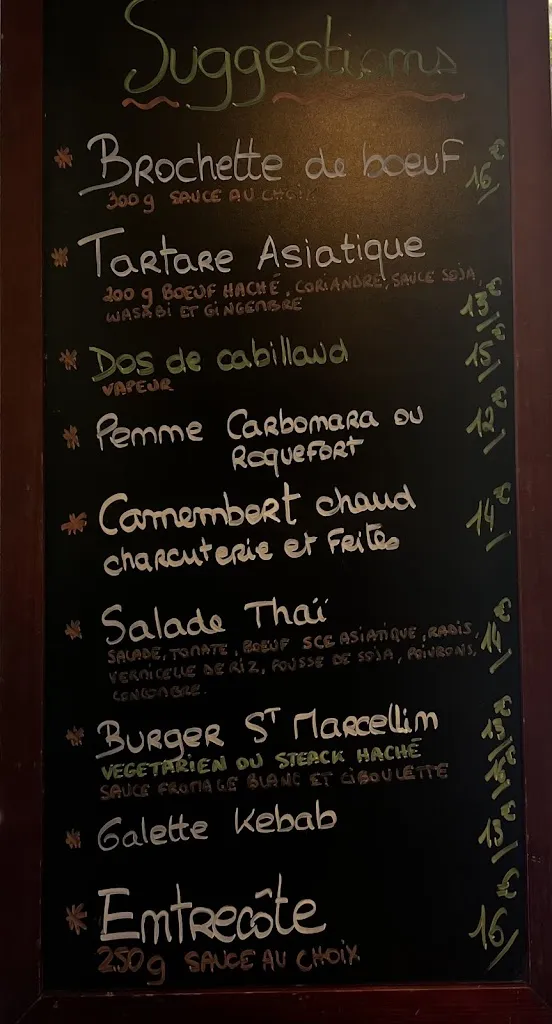 Suggestions
* Brochette de boeuf 16€
300g SAUCE AU CHOIX
* Tartare Asiatique
200 g BOEUF HACHÉ, CORIANDRE, SAUCE SOJA,
WASABI ET GINGEMBRE 13€
* Dos de cabillaud 15€
VAPEUR
* Penne Carbonara ou 12€
Roquefort
* Camembert chaud 14€
charcuterie et Frites
* Salade Thaï
SALADE, TOMATE, BOEUF SCE ASIATIQUE, RADIS, 14€
VERMICELLE DE RIZ, POUSSE DE SOJA, POIVRONS,
CONCOMBRE.
* Burger ST Marcellin
VEGETARIEN OU STEACK HACHÉ
SAUCE FROMAGE BLANC ET CIBOULETTE
* Galette Kebab 13€
* Entrecôte 16€
250g SAUCE AU CHOIX